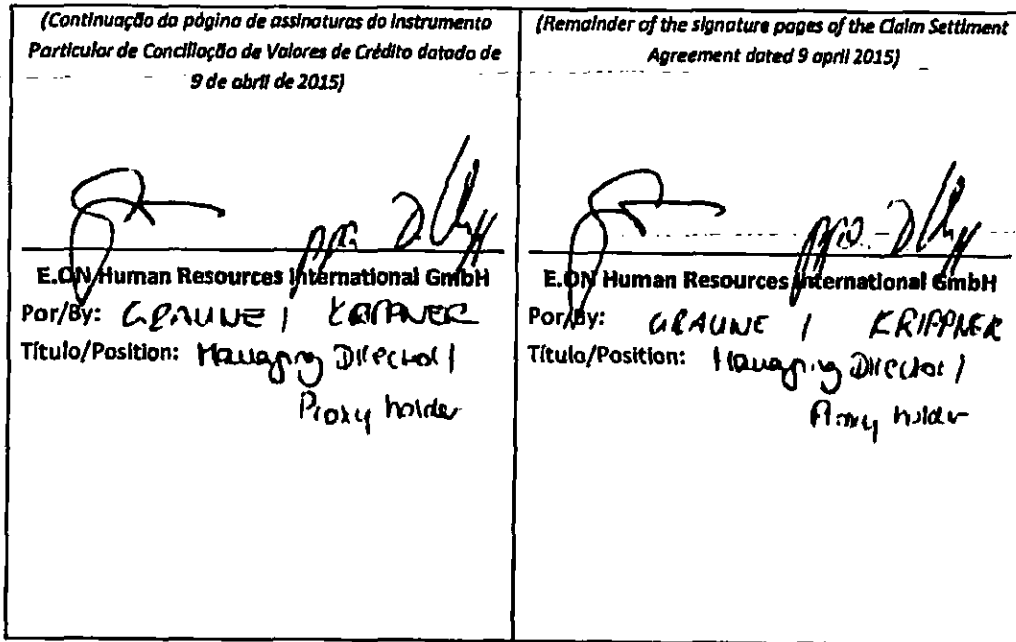 (Continuação da página de assinaturas do Instrumento
Particular de Conciliação de Valores de Crédito datado de
9 de abril de 2015)
ppa. D.
E.ON Human Resources International GmbH
Por/By: GRAUNE / KRIPPNER
Título/Position: Managing Director /
Proxy holder
(Remainder of the signature pages of the Claim Settlment
Agreement dated 9 april 2015)
ppa. D.
E.ON Human Resources International GmbH
Por/By: GRAUNE / KRIPPNER
Título/Position: Managing Director /
Proxy holder